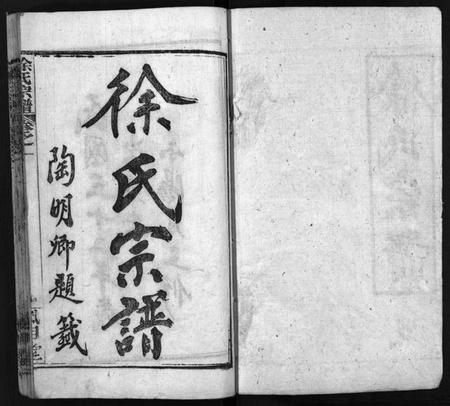 徐氏宗譜
陶明卿題籤
徐氏宗譜